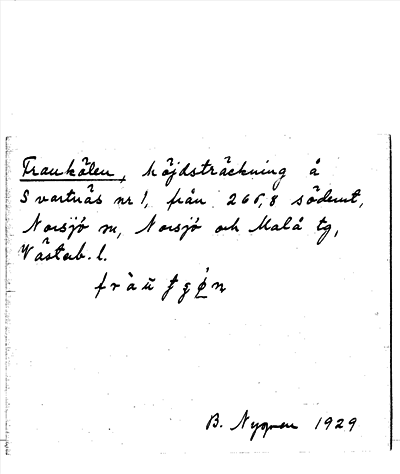 Fraukölen, höjdsträckning å
Svartnäs nr 1, från 266,8 söderut,
Norsjö sn, Norsjö och Malå tg,
Västerb. l.
B. Nygren 1929